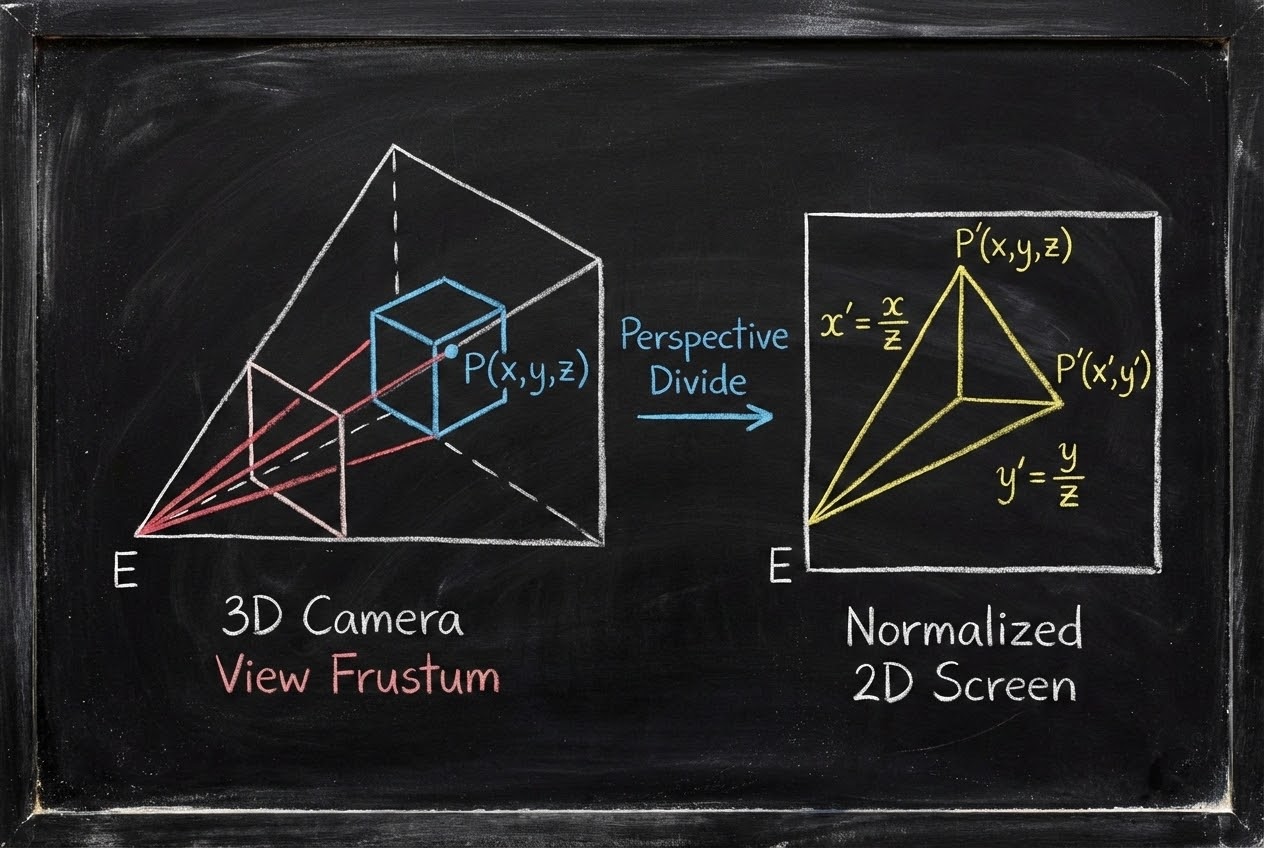 P(x,y,z)
E
3D Camera
View Frustum
Perspective
Divide
P′(x,y,z)
x′ = x/z
P′(x′,y′)
y′ = y/z
E
Normalized
2D Screen